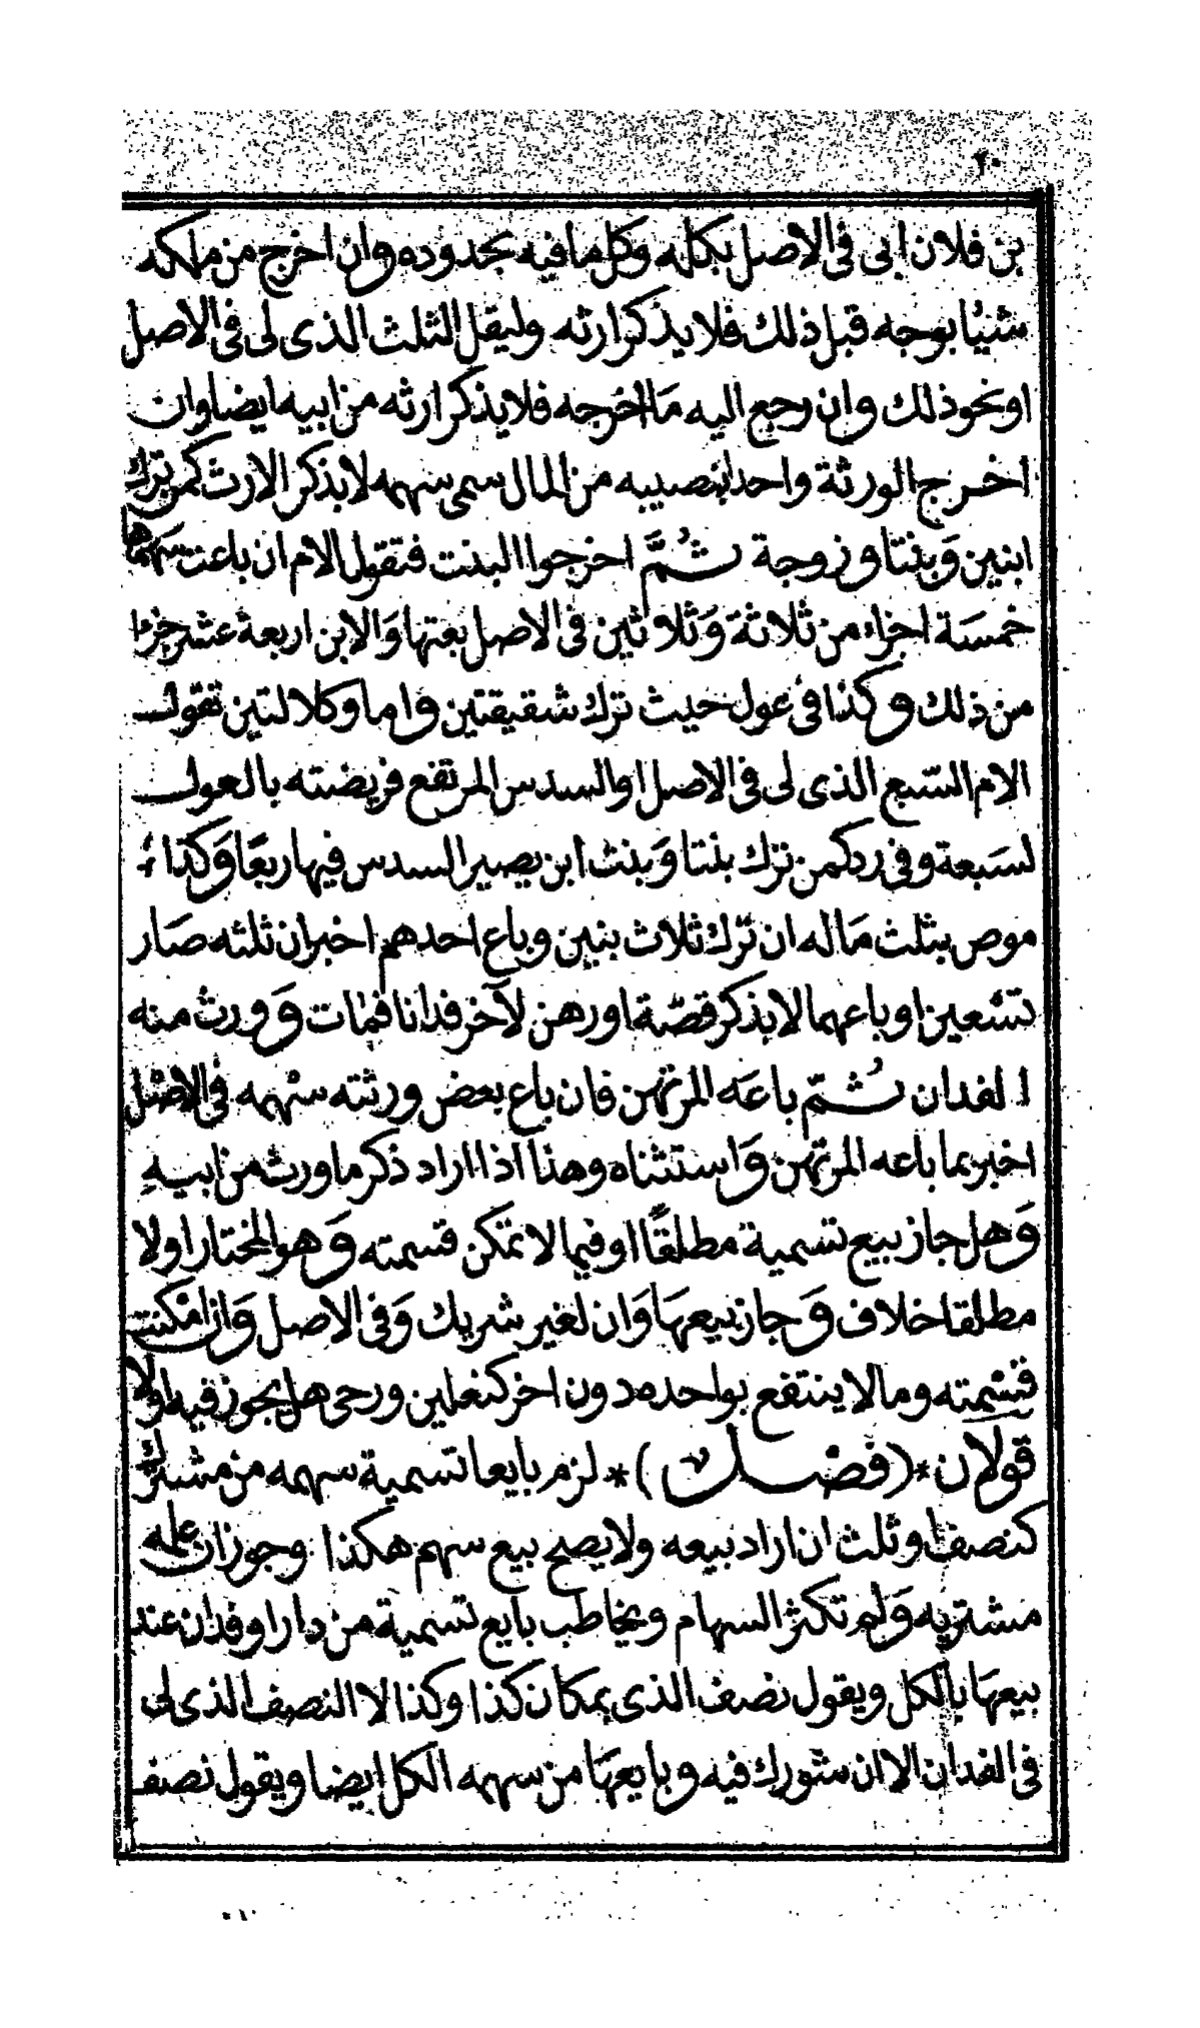 ٢٠
بن فلان ابى فى الاصل بكله وكل ما فيه بحدوده وان اخرج من ملكه
شيئا بوجه قبل ذلك فلا يذكر ارثه وليقل الثلث الذى لى فى الاصل
او نحو ذلك وان رجع اليه مَا اخرجه فلا يذكر ارثه من ابيه ايضا وان
اخرج الورثة واحدا بنصيبه من المال سمى سهمه لا بذكر الارث كمن ترك
ابنين وَبنتا وزوجة ثُمَّ اخرجوا البنت فتقول الام ان باعت سهمها
خمسَة اجزاء من ثلاثة وَثلاثين فى الاصل بعتها وَالابن اربعة عشر جزءا
من ذلك وكذا فى عول حيث ترك شقيقتين واما وكلالتين تقول
الام السّبع الذى لى فى الاصل او السدس المرتفع فريضته بالعول
لسَبعة وفى رد كمن ترك بنتا وَبنت ابن يصير السدس فيها ربعًا وَكذا
موص بثلث مَاله ان ترك ثلاث بنين وباع احدهم اخبر ان ثلثه صَار
تسْعين او باعهما لا بذكر قصّة او رهن لآخر فدانا فمات وَورث منه
الفدان ثُمّ باعَه المرتهن فان باع بعض ورثته سهْمه فى الاصْل
اخبر بما باعه المرتهن وَاستثناه وهذا اذا اراد ذكر ما ورث من ابيهِ
وَهل جاز بيع تسمية مطلقًا او فيما لا تمكن قسمته وَهو المختار اولا
مطلقا خلاف وَجاز بيعهَا وَان لغير شريك وَفى الاصل وَان امْكنت
قسْمته وما لا ينتفع بواحده دون اخر كنعلين ورحى هل يجوز فيه اولا
قولان *(فصْل)* لزم بايعا تسمية سهمه من مشترك
كنصف او ثلث ان اراد بيعه ولا يصح بيع سهم هكذا وجوز ان علمه
مشتريه وَلم تكثر السهام ويخاطب بايع تسمية من دار او فدان عند
بيعهَا بالكل ويقول نصف الذى بمكان كذا وكذا لا النصف الذى لى
فى الفدان الا ان شورك فيه وبايعهَا من سهمه الكل ايضا ويقول نصف